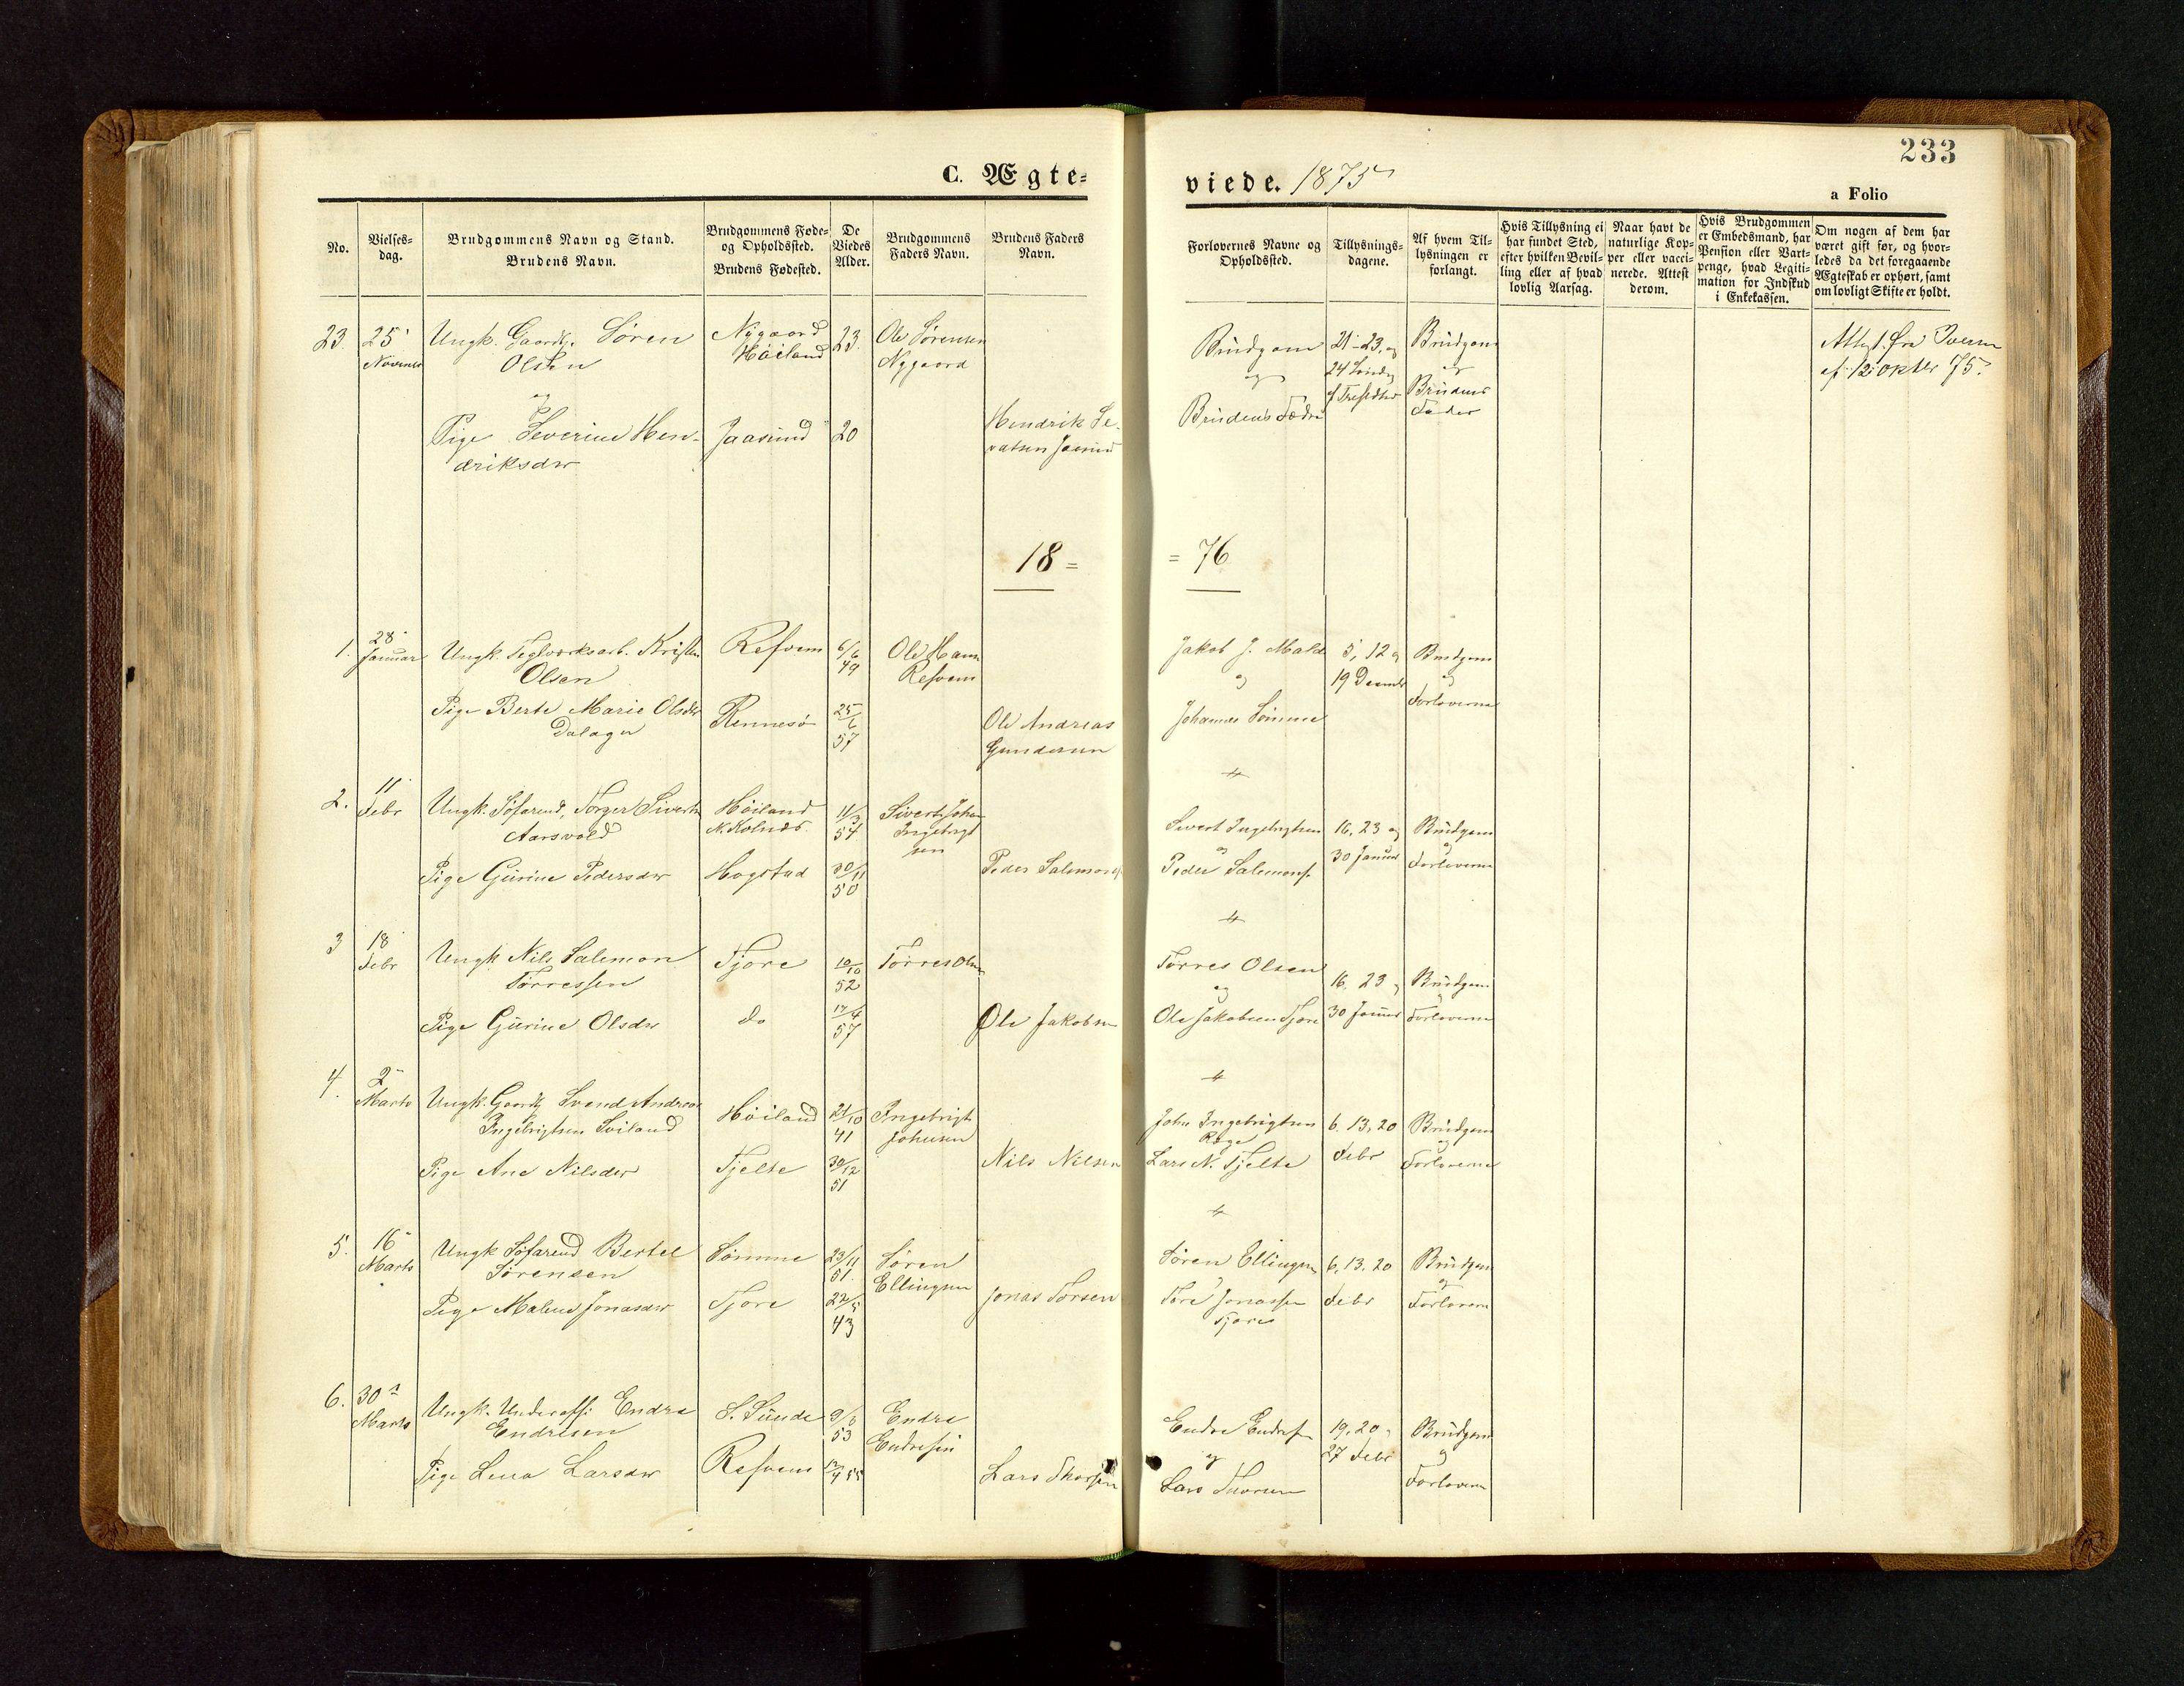 233
C. Ægte=
viede. 1875
a Folio
No.
Vielses=
dag.
Brudgommens Navn og Stand.
Brudens Navn.
Brudgommens Føde=
og Opholdssted.
Brudens Fødested.
De
Viedes
Alder.
Brudgommens
Faders Navn.
Brudens Faders
Navn.
Forlovernes Navne og
Opholdssted.
Tillysnings=
dagene.
Af hvem Til=
lysningen er
forlangt.
Hvis Tillysning ei
har fundet Sted,
efter hvilken Bevil=
ling eller af hvad
lovlig Aarsag.
Naar havt de
naturlige Kop=
per eller vacci=
nerede. Attest
derom.
Hvis Brudgommen
er Embedsmand, har
Pension eller Vart=
penge, hvad Legiti=
mation for Indskud
i Enkekassen.
Om nogen af dem har
været gift før, og hvor=
ledes da det foregaaende
Ægteskab er ophørt, samt
om lovligt Skifte er holdt.
23. 25 Ungk. Gaardbr. Søren
Olsen
og
Pige Severine Hen-
driksdtr
Nygaard
Høiland
Jaasund
23
20
Ole Sørensen
Nygaard
Hendrik Se-
vatsen Jaasund
Brudgom
og
Brudens Fader
21-23, og
24 Søndag
f Trefoldhed
Brudgom
og
Brudens
Fader
Attest fra
af 12 oktbr 75.
18 = = 76
1. 28
Januar
Ungk. Teglværksarb. Kristen
Olsen
Pige Berte Marie Olsdtr
Dalager
Refvem
Rennesø
6/6
49
25/6
57
Ole Hans
Refvem
Ole Andreas
Gundersen
Jakob J. Malde
og
Johannes Sømme
5, 12 og
19 Decembr
Brudgom
og
Forloverne
2. 11
Febr
Ungk. Søfarend, Torger Sivertsn
Aarsvold
Pige Gurine Pedersdtr
Høiland
N. Kolnæs
Hogstad
11/3
54
30/11
50
Sivert Johan
Ingebrigt
sen
Peder Salemons.
Sivert Ingebrigtsen
og
Peder Salemons.
16, 23 og
30 Januar
Brudgom
og
Forloverne
3 18
Febr
Ungk Nils Salemon
Tørressen
Pige Gurine Olsdtr
Tjore
do
10/10
52
17/4
57
Tørres Olsen
Ole Jakobsen
Tørres Olsen
og
Ole Jakobsen Tjore
16, 23 og
30 Januar
Brudgom
og
Forloverne
4. 2
Marts
Ungk. Gaardbr Svend Andreas
Ingebrigtsen Sviland
Pige Ane Nilsdtr
Høiland
Tjelte
21/10
41
30/12
51
Ingebrigt
Johnsen
Nils Nilsen
John Ingebrigtsen
Røge
Lars N. Tjelte
6. 13, 20
Febr
Brudgom
og
Forloverne
5. 16
Marts
Ungk Søfarend Bertel
Sørensen
Pige Malene Jonasdtr
Sømme
Tjore
23/11
51.
22/5
43
Søren
Ellingsen
Jonas Torsen
Søren Ellingsen
Tore Jonassen
Tjore
6, 13, 20
Febr
Brudgom
og
Forloverne
6. 30
Marts
Ungk. Underoffi Endre
Endresen
Pige Lena Larsdtr
S. Sunde
Refvem
9/3
53
Endre
Endresen
Lars Thorsen
Endre Endresen
og
Lars Thorsen
19, 20,
27 Febr
Brudgom
og
Forloverne